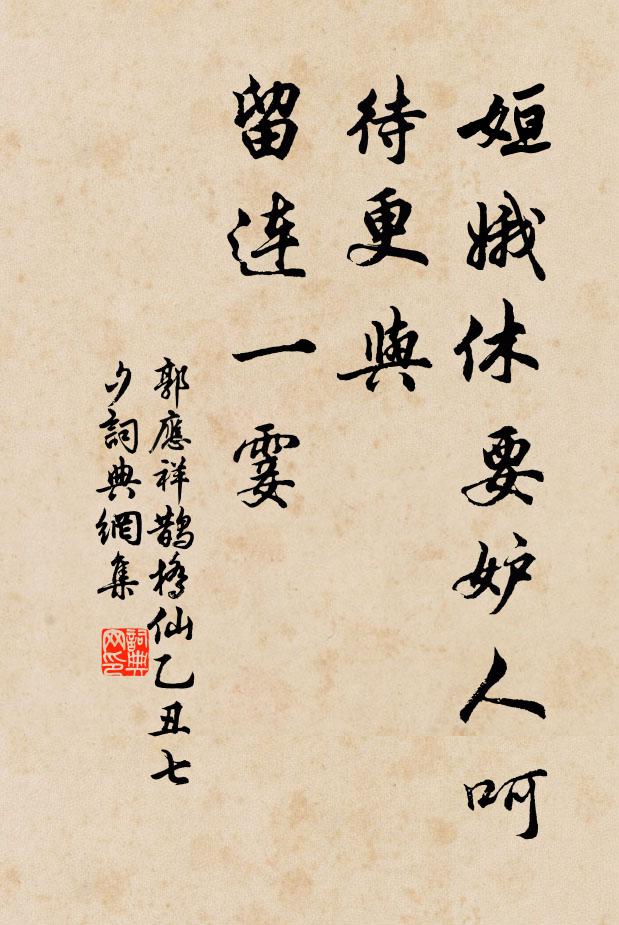 姮娥休要妒人呵
待更與
留连一霎
郭應祥鵲橋仙乙丑七
夕詞典網集
詞典网印